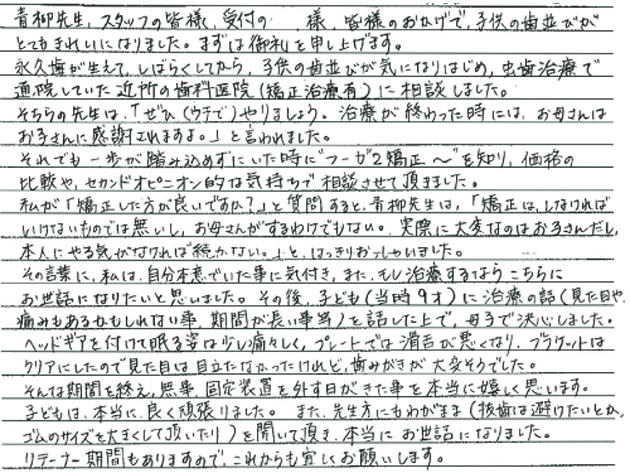 青柳先生、スタッフの皆様、受付の 様、皆様のおかげで、子供の歯並びが
とてもきれいになりました。まずは御礼を申し上げます。
永久歯が生えて、しばらくしてから、子供の歯並びが気になりはじめ、虫歯治療で
通院していた近所の歯科医院(矯正治療有)に相談しました。
そちらの先生は、「ぜひ(ウチで)やりましょう。治療が終わった時には、お母さんは
お子さんに感謝されますよ。」と言われました。
それでも一歩が踏み込めずにいた時に"フーガ2矯正〜"を知り、価格の
比較や、セカンドオピニオン的な気持ちで相談させて頂きました。
私が「矯正した方が良いですか?」と質問すると、青柳先生は、「矯正は、しなければ
いけないものでは無いし、お母さんがするわけでもない。実際に大変なのはお子さんだし、
本人にやる気がなければ続かない。」と、はっきりおっしゃいました。
その言葉に、私は、自分本意でいた事に気付き、また、もし治療するならこちらに
お世話になりたいと思いました。その後、子ども(当時9才)に治療の話(見た目や、
痛みもあるかもしれない事、期間が長い事等)を話した上で、母子で決心しました。
ヘッドギアを付けて眠る姿は少し痛々しく、プレートでは滑舌が悪くなり、ブラケットは
クリアにしたので見た目は目立たなかったけれど、歯みがきが大変そうでした。
そんな期間を終え、無事、固定装置を外す日がきた事を本当に嬉しく思います。
子どもは、本当に、良く頑張りました。また、先生方にもわがまま(抜歯は避けたいとか、
ゴムのサイズを大きくして頂いたり)を聞いて頂き、本当にお世話になりました。
リテーナー期間もありますので、これからも宜しくお願いします。